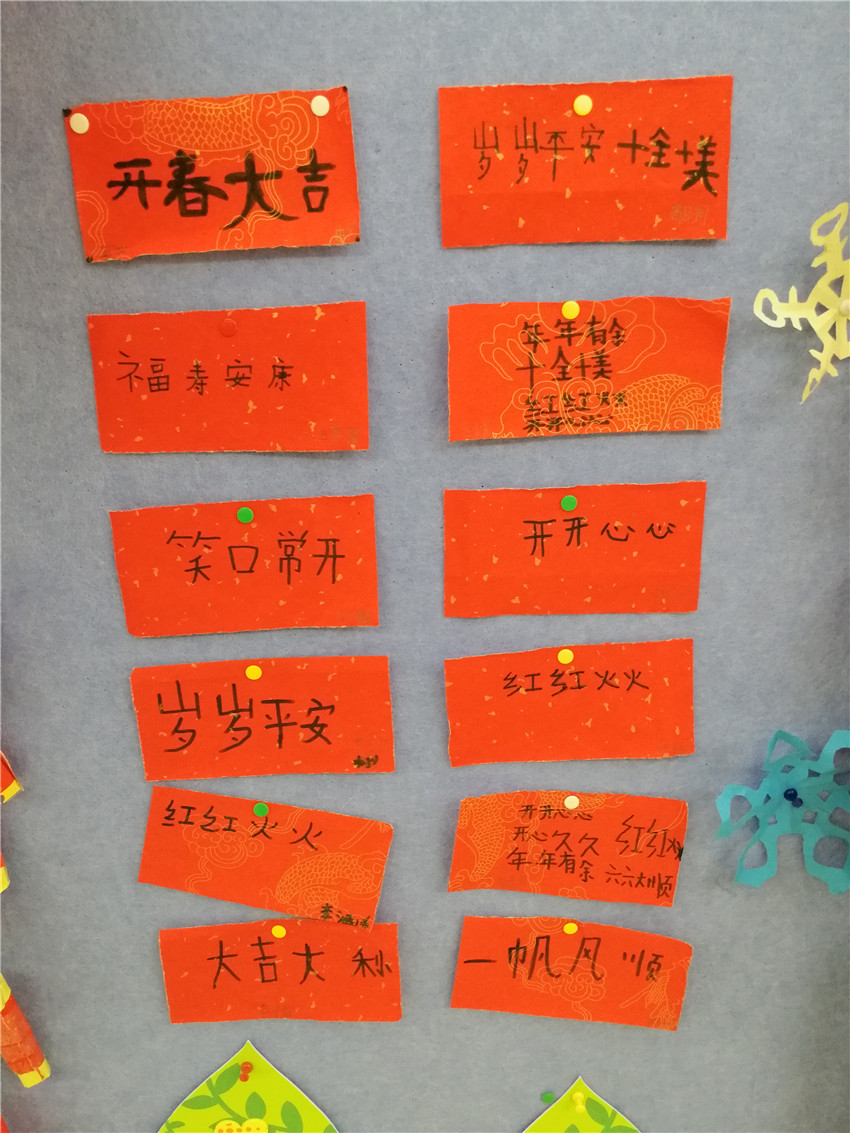 开春大吉
岁岁平安 十全十美
福寿安康
年年有余
十全十美
红红火火
笑口常开
开开心心
岁岁平安
红红火火
红红火火
开开心心
开心久久 红红火火
年年有余 六六大顺
大吉大利
一帆风顺